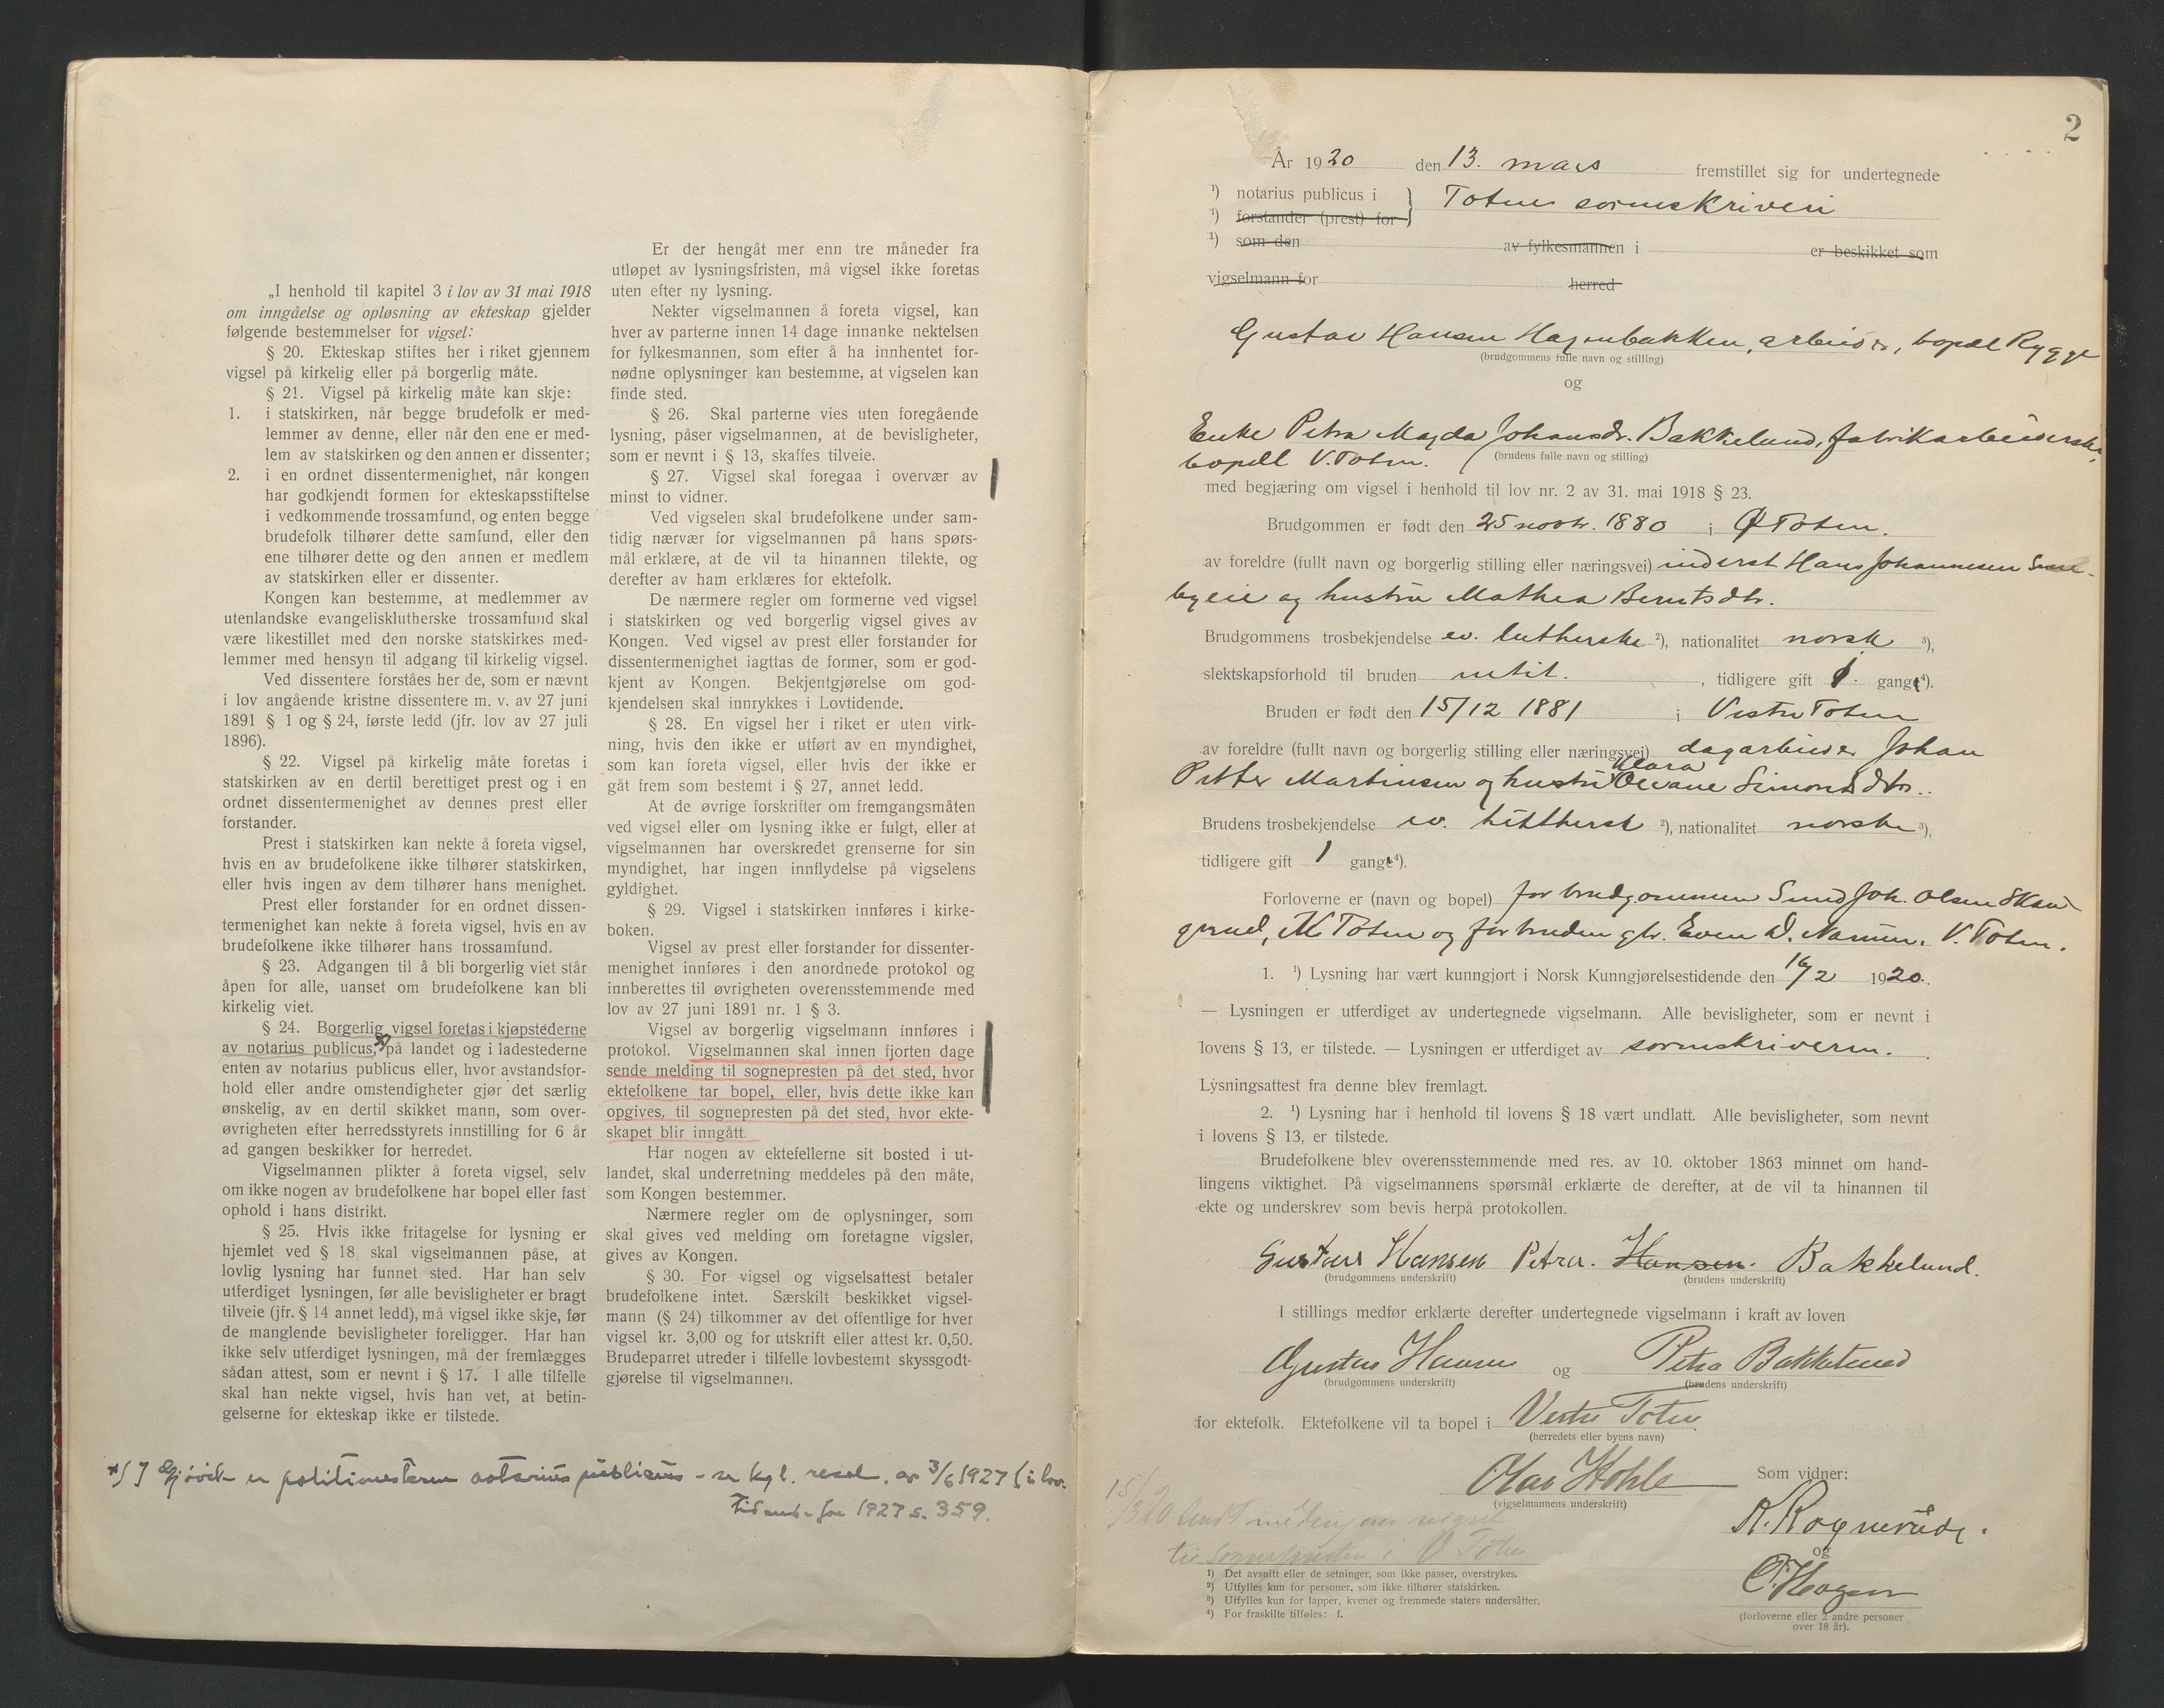 „I henhold til kapitel 3 i lov av 31 mai 1918
om inngåelse og opløsning av ekteskap gjelder
følgende bestemmelser for vigsel:
§ 20. Ekteskap stiftes her i riket gjennem
vigsel på kirkelig eller på borgerlig måte.
§ 21. Vigsel på kirkelig måte kan skje:
1. i statskirken, når begge brudefolk er med-
lemmer av denne, eller når den ene er med-
lem av statskirken og den annen er dissenter;
2. i en ordnet dissentermenighet, når kongen
har godkjendt formen for ekteskapsstiftelse
i vedkommende trossamfund, og enten begge
brudefolk tilhører dette samfund, eller den
ene tilhører dette og den annen er medlem
av statskirken eller er dissenter.
Kongen kan bestemme, at medlemmer av
utenlandske evangelisklutherske trossamfund skal
være likestillet med den norske statskirkes med-
lemmer med hensyn til adgang til kirkelig vigsel.
Ved dissentere forståes her de, som er nævnt
i lov angående kristne dissentere m. v. av 27 juni
1891 § 1 og § 24, første ledd (jfr. lov av 27 juli
1896).
§ 22. Vigsel på kirkelig måte foretas i
statskirken av en dertil berettiget prest og i en
ordnet dissentermenighet av dennes prest eller
forstander.
Prest i statskirken kan nekte å foreta vigsel,
hvis en av brudefolkene ikke tilhører statskirken,
eller hvis ingen av dem tilhører hans menighet.
Prest eller forstander for en ordnet dissen-
termenighet kan nekte å foreta vigsel, hvis en av
brudefolkene ikke tilhører hans trossamfund.
§ 23. Adgangen til å bli borgerlig viet står
åpen for alle, uanset om brudefolkene kan bli
kirkelig viet.
§ 24. Borgerlig vigsel foretas i kjøpstederne
av notarius publicus, *) på landet og i ladestederne
enten av notarius publicus eller, hvor avstandsfor-
hold eller andre omstendigheter gjør det særlig
ønskelig, av en dertil skikket mann, som over-
øvrigheten efter herredsstyrets innstilling for 6 år
ad gangen beskikker for herredet.
Vigselmannen plikter å foreta vigsel, selv
om ikke nogen av brudefolkene har bopel eller fast
ophold i hans distrikt.
§ 25. Hvis ikke fritagelse for lysning er
hjemlet ved § 18, skal vigselmannen påse, at
lovlig lysning har funnet sted. Har han selv
utferdiget lysningen, før alle bevisligheter er bragt
tilveie (jfr. § 14 annet ledd), må vigsel ikke skje, før
de manglende bevisligheter foreligger. Har han
ikke selv utferdiget lysningen, må der fremlægges
sådan attest, som er nevnt i § 17. I alle tilfelle
skal han nekte vigsel, hvis han vet, at betin-
gelserne for ekteskap ikke er tilstede.
Er der hengåt mer enn tre måneder fra
utløpet av lysningsfristen, må vigsel ikke foretas
uten efter ny lysning.
Nekter vigselmannen å foreta vigsel, kan
hver av parterne innen 14 dage innanke nektelsen
for fylkesmannen, som efter å ha innhentet for-
nødne oplysninger kan bestemme, at vigselen kan
finde sted.
§ 26. Skal parterne vies uten foregående
lysning, påser vigselmannen, at de bevisligheter,
som er nevnt i § 13, skaffes tilveie.
§ 27. Vigsel skal foregaa i overvær av
minst to vidner.
Ved vigselen skal brudefolkene under sam-
tidig nærvær for vigselmannen på hans spørs-
mål erklære, at de vil ta hinannen tilekte, og
derefter av ham erklæres for ektefolk.
De nærmere regler om formerne ved vigsel
i statskirken og ved borgerlig vigsel gives av
Kongen. Ved vigsel av prest eller forstander for
dissentermenighet iagttas de former, som er god-
kjent av Kongen. Bekjentgjørelse om god-
kjendelsen skal innrykkes i Lovtidende.
§ 28. En vigsel her i riket er uten virk-
ning, hvis den ikke er utført av en myndighet,
som kan foreta vigsel, eller hvis der ikke er
gåt frem som bestemt i § 27, annet ledd.
At de øvrige forskrifter om fremgangsmåten
ved vigsel eller om lysning ikke er fulgt, eller at
vigselmannen har overskredet grenserne for sin
myndighet, har ingen innflydelse på vigselens
gyldighet.
§ 29. Vigsel i statskirken innføres i kirke-
boken.
Vigsel av prest eller forstander for dissenter-
menighet innføres i den anordnede protokol og
innberettes til øvrigheten overensstemmende med
lov av 27 juni 1891 nr. 1 § 3.
Vigsel av borgerlig vigselmann innføres i
protokol. Vigselmannen skal innen fjorten dage
sende melding til sognepresten på det sted, hvor
ektefolkene tar bopel, eller, hvis dette ikke kan
opgives, til sognepresten på det sted, hvor ekte-
skapet blir inngått.
Har nogen av ektefellerne sit bosted i ut-
landet, skal underretning meddeles på den måte,
som Kongen bestemmer.
Nærmere regler om de oplysninger, som
skal gives ved melding om foretagne vigsler,
gives av Kongen.
§ 30. For vigsel og vigselsattest betaler
brudefolkene intet. Særskilt beskikket vigsel-
mann (§ 24) tilkommer av det offentlige for hver
vigsel kr. 3,00 og for utskrift eller attest kr. 0,50.
Brudeparret utreder i tilfelle lovbestemt skyssgodt-
gjørelse til vigselmannen.
*) I Gjøvik er politimesteren notarius publicus - se kgl. resol. av 3/6 1927 (i lov-
tidende for 1927 s. 359.
2
År 1920 den 13. mars fremstillet sig for undertegnede
1) notarius publicus i } Totens sorenskriveri
1) forstander (prest) for
1) som den av fylkesmannen i er beskikket som
vigselmann for herred
Gustav Hansen Hagenbakken, arbeider, bopæl Rygge
(brudgommens fulle navn og stilling)
og
Enke Petra Magda Johansdr. Bakkelund, fabrikarbeiderske,
bopæl V. Toten. (brudens fulle navn og stilling)
med begjæring om vigsel i henhold til lov nr. 2 av 31. mai 1918 § 23.
Brudgommen er født den 25 novbr. 1880 i Ø Toten.
av foreldre (fullt navn og borgerlig stilling eller næringsvei) inderst Hans Johannesen
byeie og hustru Mathea Berntsdtr.
Brudgommens trosbekjendelse ev. lutherske 2), nationalitet norsk 3),
slektskapsforhold til bruden intet. , tidligere gift 1. gang 4).
Bruden er født den 15/12 1881 i Vestre Toten
av foreldre (fullt navn og borgerlig stilling eller næringsvei) dagarbeider Johan
Petter Martinsen og hustru Klara Olevane Simonsdtr.
Brudens trosbekjendelse ev. luthersk 2), nationalitet norske 3),
tidligere gift 1 gang 4).
Forloverne er (navn og bopel) for brudgommen Smed Joh. Olsen
grud, V. Toten og for bruden gbr. Even D. V. Toten.
1. 1) Lysning har vært kunngjort i Norsk Kunngjørelsestidende den 16/2 1920.
— Lysningen er utferdiget av undertegnede vigselmann. Alle bevisligheter, som er nevnt i
lovens § 13, er tilstede. — Lysningen er utferdiget av sorenskriveren.
Lysningsattest fra denne blev fremlagt.
2. 1) Lysning har i henhold til lovens § 18 vært undlatt. Alle bevisligheter, som nevnt
i lovens § 13, er tilstede.
Brudefolkene blev overensstemmende med res. av 10. oktober 1863 minnet om hand-
lingens viktighet. På vigselmannens spørsmål erklærte de derefter, at de vil ta hinannen til
ekte og underskrev som bevis herpå protokollen.
Gustav Hansen Petra. Hansen. Bakkelund.
(brudgommens underskrift) (brudens underskrift)
I stillings medfør erklærte derefter undertegnede vigselmann i kraft av loven
Gustav Hansen og Petra Bakkelund
(brudgommens underskrift) (brudens underskrift)
for ektefolk. Ektefolkene vil ta bopel i Vestre Toten.
(herredets eller byens navn)
Olav Hohle Som vidner:
(vigselmannens underskrift)
K. Rognerud.
og
15/3 20 sendt melding om vigsel
til sognepresten i V Toten
1) Det avsnitt eller de setninger, som ikke passer, overstrykes.
2) Utfylles kun for personer, som ikke tilhører statskirken.
3) Utfylles kun for lapper, kvener og fremmede staters undersåtter.
4) For fraskilte tilføies: f.
(forloverne eller 2 andre personer
over 18 år).